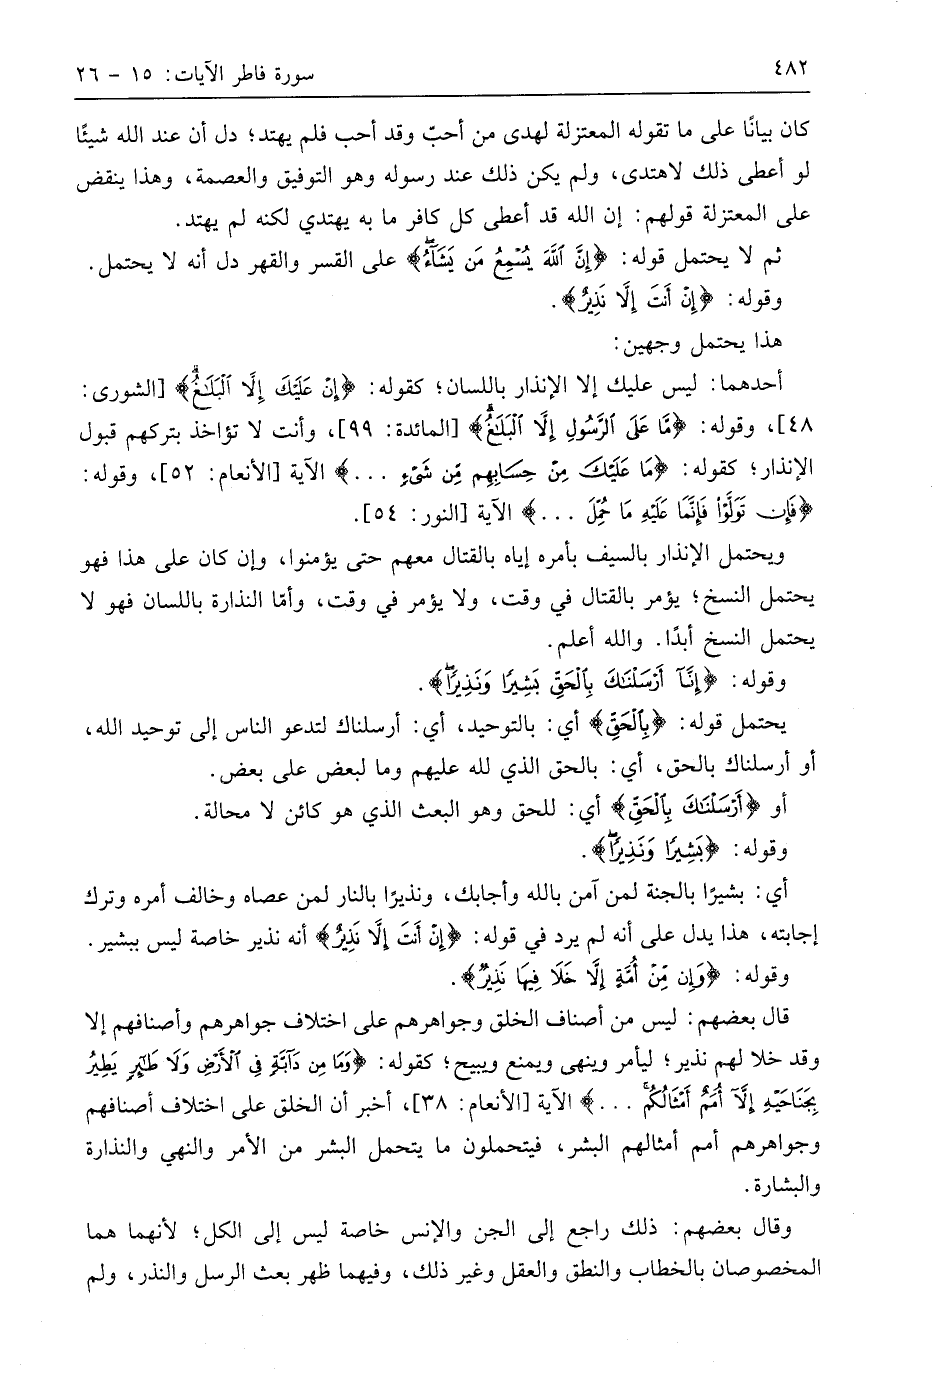 ٤٨٢
سورة فاطر الآيات: ١٥ - ٢٦
كان بيانًا على ما تقوله المعتزلة لهدى من أحبّ وقد أحب فلم يهتد؛ دل أن عند الله شيئًا
لو أعطى ذلك لاهتدى، ولم يكن ذلك عند رسوله وهو التوفيق والعصمة، وهذا ينقض
على المعتزلة قولهم: إن الله قد أعطى كل كافر ما به يهتدي لكنه لم يهتد.
ثم لا يحتمل قوله: ﴿إِنَّ ٱللَّهَ يُسْمِعُ مَن يَشَآءُۖ﴾ على القسر والقهر دل أنه لا يحتمل.
وقوله: ﴿إِنْ أَنتَ إِلَّا نَذِيرٌ﴾.
هذا يحتمل وجهين:
أحدهما: ليس عليك إلا الإنذار باللسان؛ كقوله: ﴿إِنْ عَلَيْكَ إِلَّا ٱلْبَلَٰغُۗ﴾ [الشورى:
٤٨]، وقوله: ﴿مَّا عَلَى ٱلرَّسُولِ إِلَّا ٱلْبَلَٰغُۗ﴾ [المائدة: ٩٩]، وأنت لا تؤاخذ بتركهم قبول
الإنذار؛ كقوله: ﴿مَا عَلَيْكَ مِنْ حِسَابِهِم مِّن شَىْءٍ ...﴾ الآية [الأنعام: ٥٢]، وقوله:
﴿فَإِن تَوَلَّوْا۟ فَإِنَّمَا عَلَيْهِ مَا حُمِّلَ ...﴾ الآية [النور: ٥٤].
ويحتمل الإنذار بالسيف بأمره إياه بالقتال معهم حتى يؤمنوا، وإن كان على هذا فهو
يحتمل النسخ؛ يؤمر بالقتال في وقت، ولا يؤمر في وقت، وأمّا النذارة باللسان فهو لا
يحتمل النسخ أبدًا. والله أعلم.
وقوله: ﴿إِنَّآ أَرْسَلْنَٰكَ بِٱلْحَقِّ بَشِيرًا وَنَذِيرًاۖ﴾.
يحتمل قوله: ﴿بِٱلْحَقِّ﴾ أي: بالتوحيد، أي: أرسلناك لتدعو الناس إلى توحيد الله،
أو أرسلناك بالحق، أي: بالحق الذي لله عليهم وما لبعض على بعض.
أو ﴿أَرْسَلْنَٰكَ بِٱلْحَقِّ﴾ أي: للحق وهو البعث الذي هو كائن لا محالة.
وقوله: ﴿بَشِيرًا وَنَذِيرًاۖ﴾.
أي: بشيرًا بالجنة لمن آمن بالله وأجابك، ونذيرًا بالنار لمن عصاه وخالف أمره وترك
إجابته، هذا يدل على أنه لم يرد في قوله: ﴿إِنْ أَنتَ إِلَّا نَذِيرٌ﴾ أنه نذير خاصة ليس ببشير.
وقوله: ﴿وَإِن مِّنْ أُمَّةٍ إِلَّا خَلَا فِيهَا نَذِيرٌ﴾.
قال بعضهم: ليس من أصناف الخلق وجواهرهم على اختلاف جواهرهم وأصنافهم إلا
وقد خلا لهم نذير؛ ليأمر وينهى ويمنع ويبيح؛ كقوله: ﴿وَمَا مِن دَآبَّةٍ فِى ٱلْأَرْضِ وَلَا طَٰٓئِرٍ يَطِيرُ
بِجَنَاحَيْهِ إِلَّآ أُمَمٌ أَمْثَالُكُمۚ ...﴾ الآية [الأنعام: ٣٨]، أخبر أن الخلق على اختلاف أصنافهم
وجواهرهم أمم أمثالهم البشر، فيتحملون ما يتحمل البشر من الأمر والنهي والنذارة
والبشارة.
وقال بعضهم: ذلك راجع إلى الجن والإنس خاصة ليس إلى الكل؛ لأنهما هما
المخصوصان بالخطاب والنطق والعقل وغير ذلك، وفيهما ظهر بعث الرسل والنذر، ولم